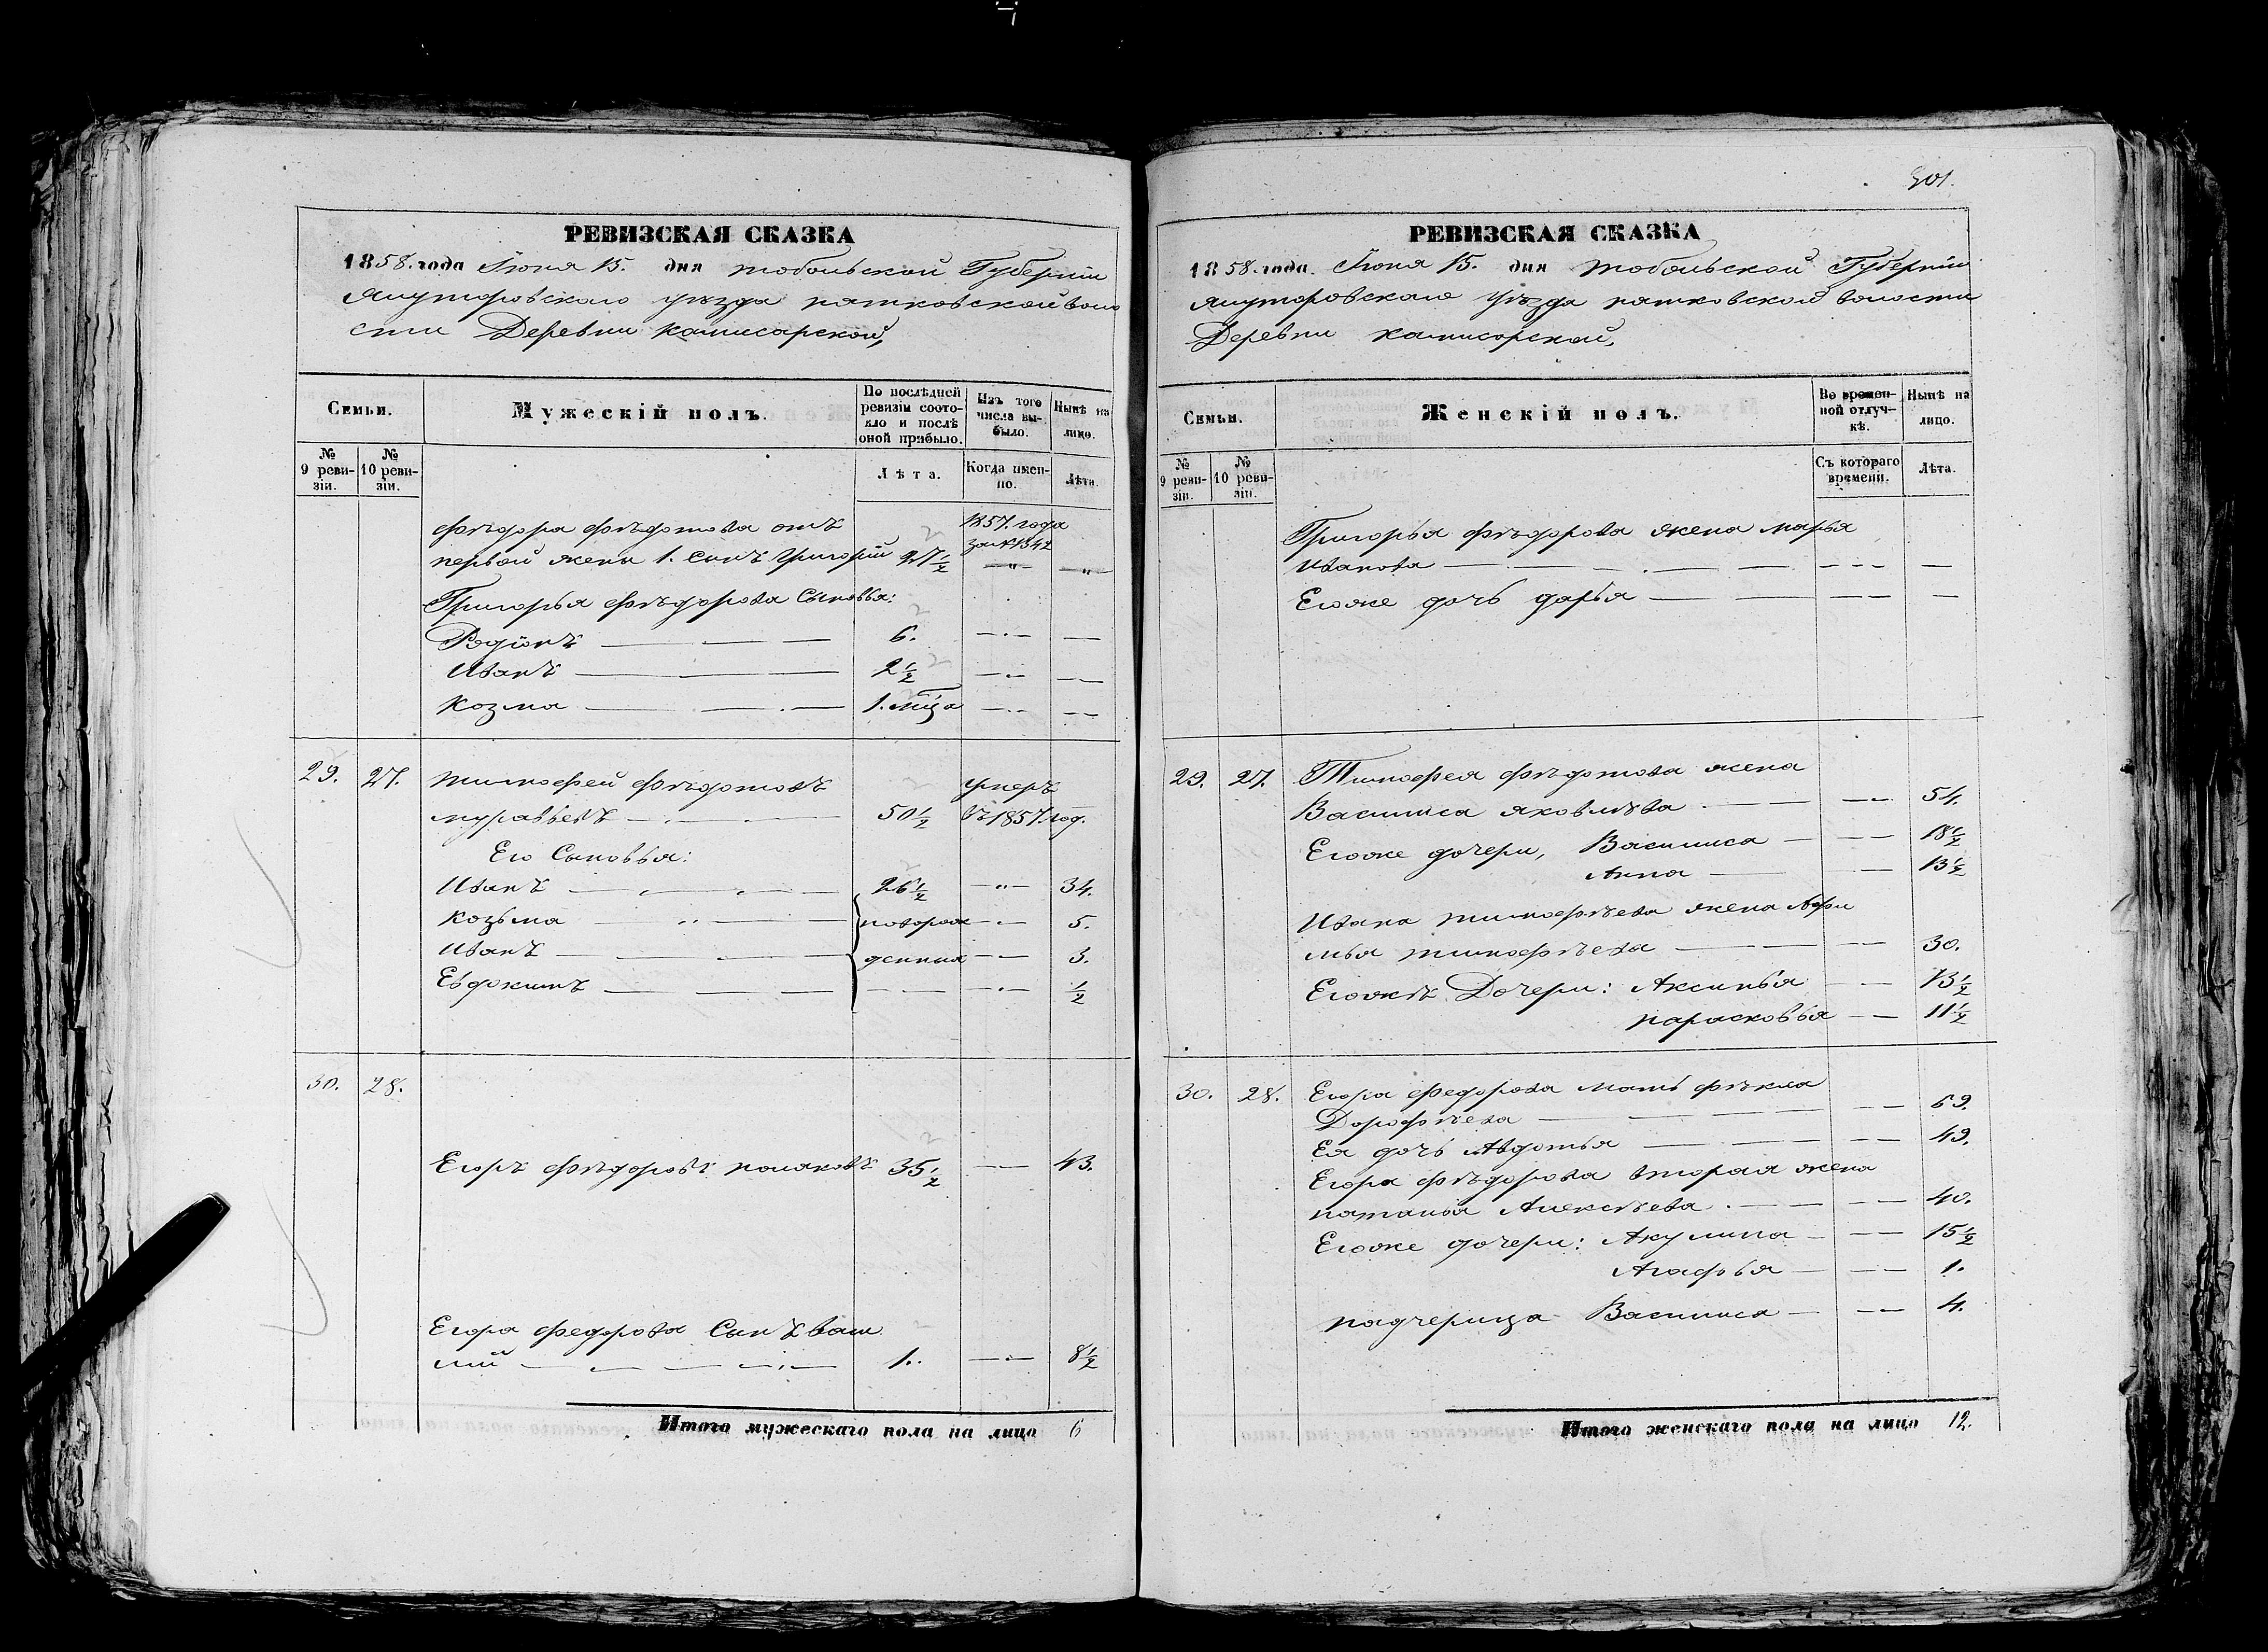 301.
РЕВИЗСКАЯ СКАЗКА
1858. года Іюня 15. дня тобольской Губерніи
Ялуторовскаго уѣзда пятковской воло
сти Деревни камисарской,
Семьи.
Мужескій полъ.
По послѣдней ревизіи состо-
яло и послѣ оной прибыло.
Изъ того числа вы-
было.
Нынѣ на лицо.
№ 9 реви-
зіи.
№ 10 реви-
зіи.
Лѣта.
Когда имен-
но.
Лѣта.
Фѣдора Фѣдотова отъ 1857. года
первой жены 1. сынъ Григорій 27½ за №1342 — " — — " —
Григорья Фѣдорова Сыновья:
Родіонъ — — — 6. — — —
Иванъ — — — 2½ — — —
Козма — — — 1. мѣца — — —
29. 27. тимофей Фѣдотовъ умеръ
муравьевъ — — 50½ въ 1857. год.
Его Сыновья:
Иванъ — — — 26½ — " — 34.
Козьма — — — новорож — — 5.
Иванъ — — — денныя — — 3.
Евдокимъ — — — — — — ½
30. 28.
Егоръ Фѣдоровъ поляковъ 35½ — — 43.
Егора Федорова Сынъ васи
лій — — — — 1. — — 8½
Итого мужескаго пола на лицо 6
РЕВИЗСКАЯ СКАЗКА
1858. года. Іюня 15. дня тобольской Губерніи
Ялуторовскаго Уѣзда пятковской волости
Деревни камисарской,
Семьи.
Женскій полъ.
Во времен-
ной отлуч-
кѣ.
Нынѣ на лицо.
№ 9 реви-
зіи.
№ 10 реви-
зіи.
Съ котораго времени.
Лѣта.
Григорья Фѣдорова жена марья
Иванова — — — — — — —
Егоже дочь дарья — — — — —
29. 27. Тимофея Фѣдотова жена
Васииса яковлѣва — — — — 54.
Егоже дочери, Васииса — — — 18½
Анна — — — 13½
Ивана тимофѣева жена Афи
мья тимофѣева — — — — 30.
Егожѣ Дочери: Аксинья — — 13½
парасковья — — 11½
30. 28. Егора Федорова мать Фѣкла
Дорофѣева — — — — — 69.
Ея дочь Авдотья — — — — 49.
Егора Фѣдорова вторая жена
наталья Алексѣева — — — — 40.
Егоже дочери: Акулина — — — 15½
Агафья — — — 1.
падчерица Васииса — — — 4.
Итого женскаго пола на лицо 12.